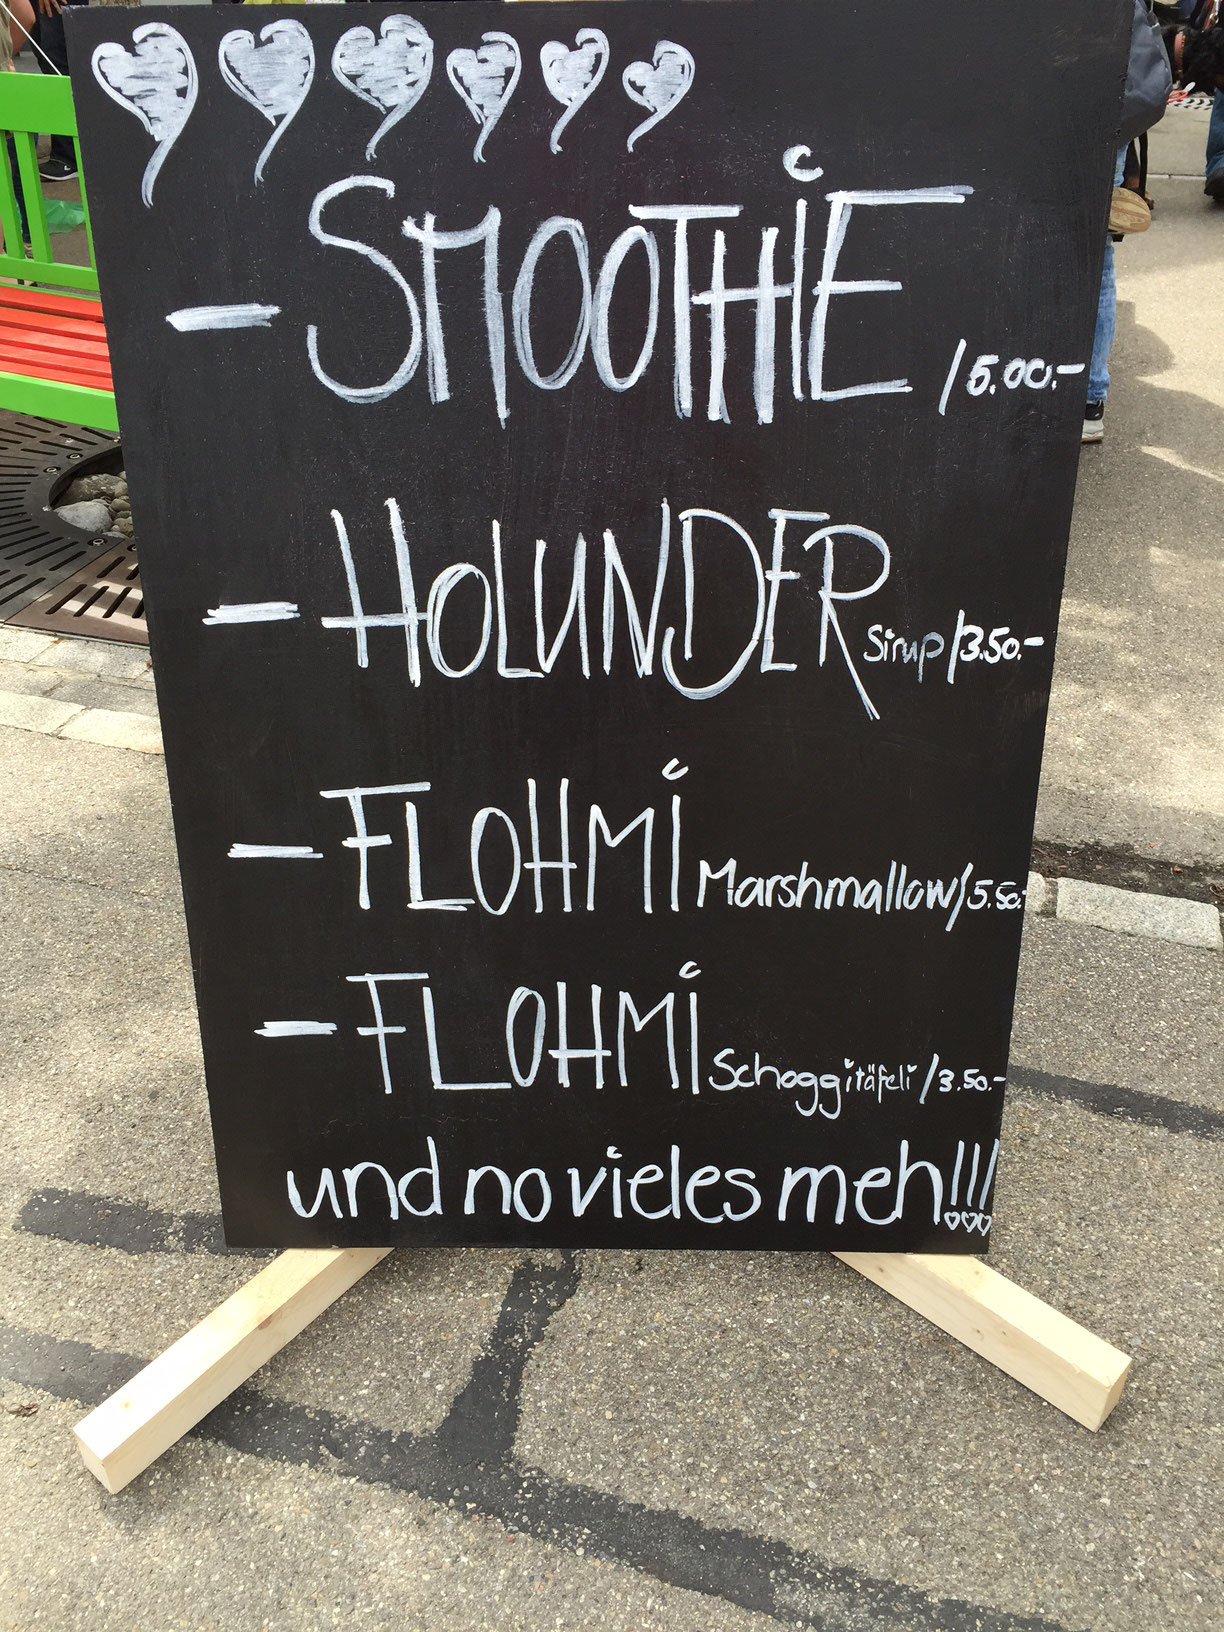 - SMOOTHiE /5.00.-
- HOLUNDER Sirup /3.50.-
- FLOHMi Marshmallow /5.50.-
- FLOHMi Schoggitäfeli /3.50.-
und no vieles meh!!!